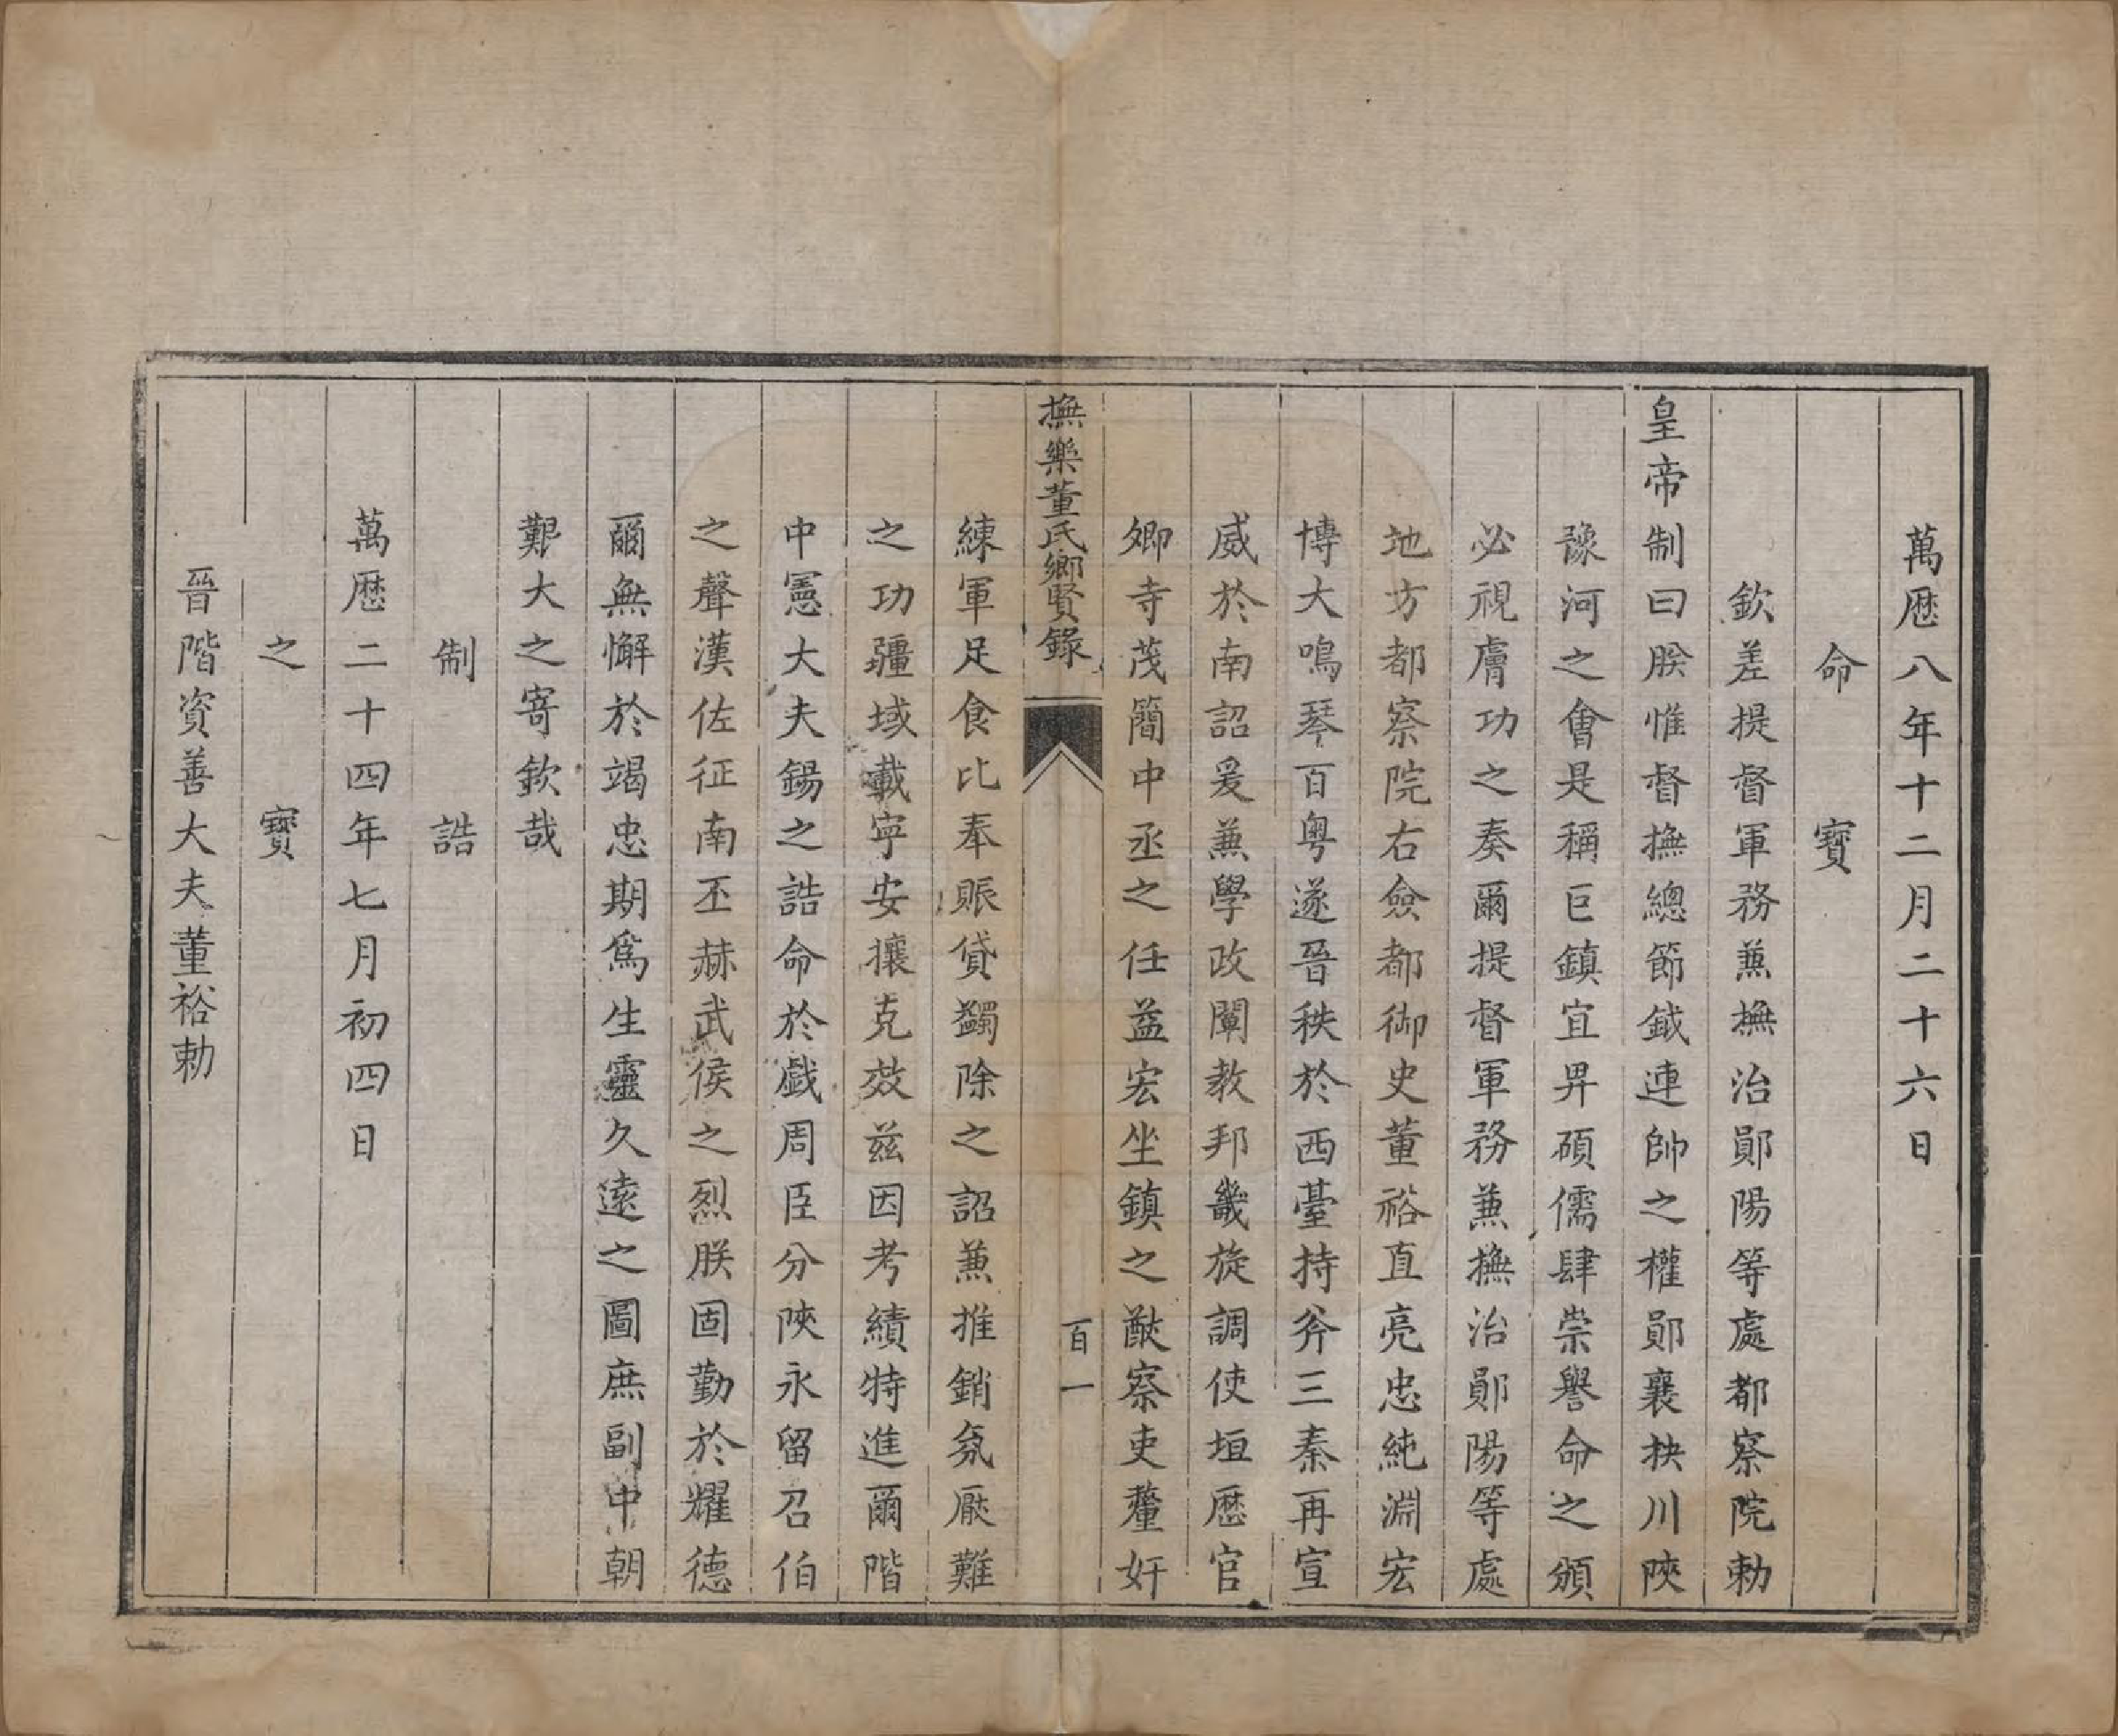 萬歷八年十二月二十六日
命寶
欽差提督軍務兼撫治鄖陽等處都察院勅
皇帝制曰朕惟督撫總節鉞連帥之權鄖襄抉川陝
豫河之會是稱巨鎮宜畀碩儒肆崇譽命之頒
必視膚功之奏爾提督軍務兼撫治鄖陽等處
地方都察院右僉都御史董裕直亮忠純淵宏
博大鳴琴百粤遂晉秩於西臺持斧三秦再宣
威於南詔爰兼學政闡教邦畿旋調使垣歷官
卿寺茂簡中丞之任益宏坐鎮之猷察吏釐奸
撫樂董氏鄉賢錄
百一
練軍足食比奉賑貸蠲除之詔兼推銷氛厭難
之功疆域載寧安攘克效兹因考績特進爾階
中憲大夫錫之誥命於戲周臣分陝永留召伯
之聲漢佐征南丕赫武侯之烈朕固勤於耀德
爾無懈於竭忠期爲生靈久遠之圖庶副中朝
艱大之寄欽哉
制誥
萬歷二十四年七月初四日
之寶
晉階資善大夫董裕勅